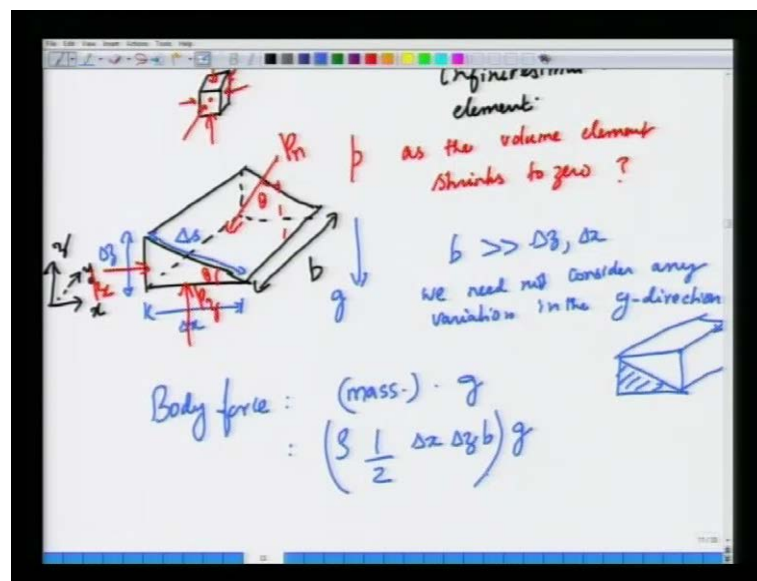 File Edit View Insert Actions Tools Help
Infinitesimal
element.
p as the volume element
shrinks to zero ?
Pn
θ
Δs
Δz
z
y
x
Px
θ
b
Pz
Δx
g
b >> Δz, Δx
we need not consider any
variation in the y-direction
Body force : (mass.) . g
: (ρ 1/2 Δx Δz b) g